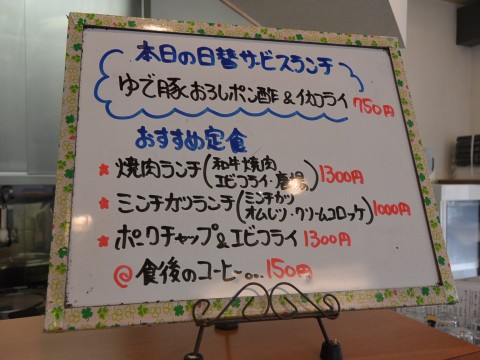 本日の日替サービスランチ
ゆで豚おろしポン酢&イカフライ 750円
おすすめ定食
★焼肉ランチ(和牛焼肉
エビフライ・唐揚の) 1300円
★ミンチカツランチ(ミンチカツ
オムレツ・クリームコロッケ) 1000円
★ポークチャップ&エビフライ 1300円
@食後のコーヒー... 150円